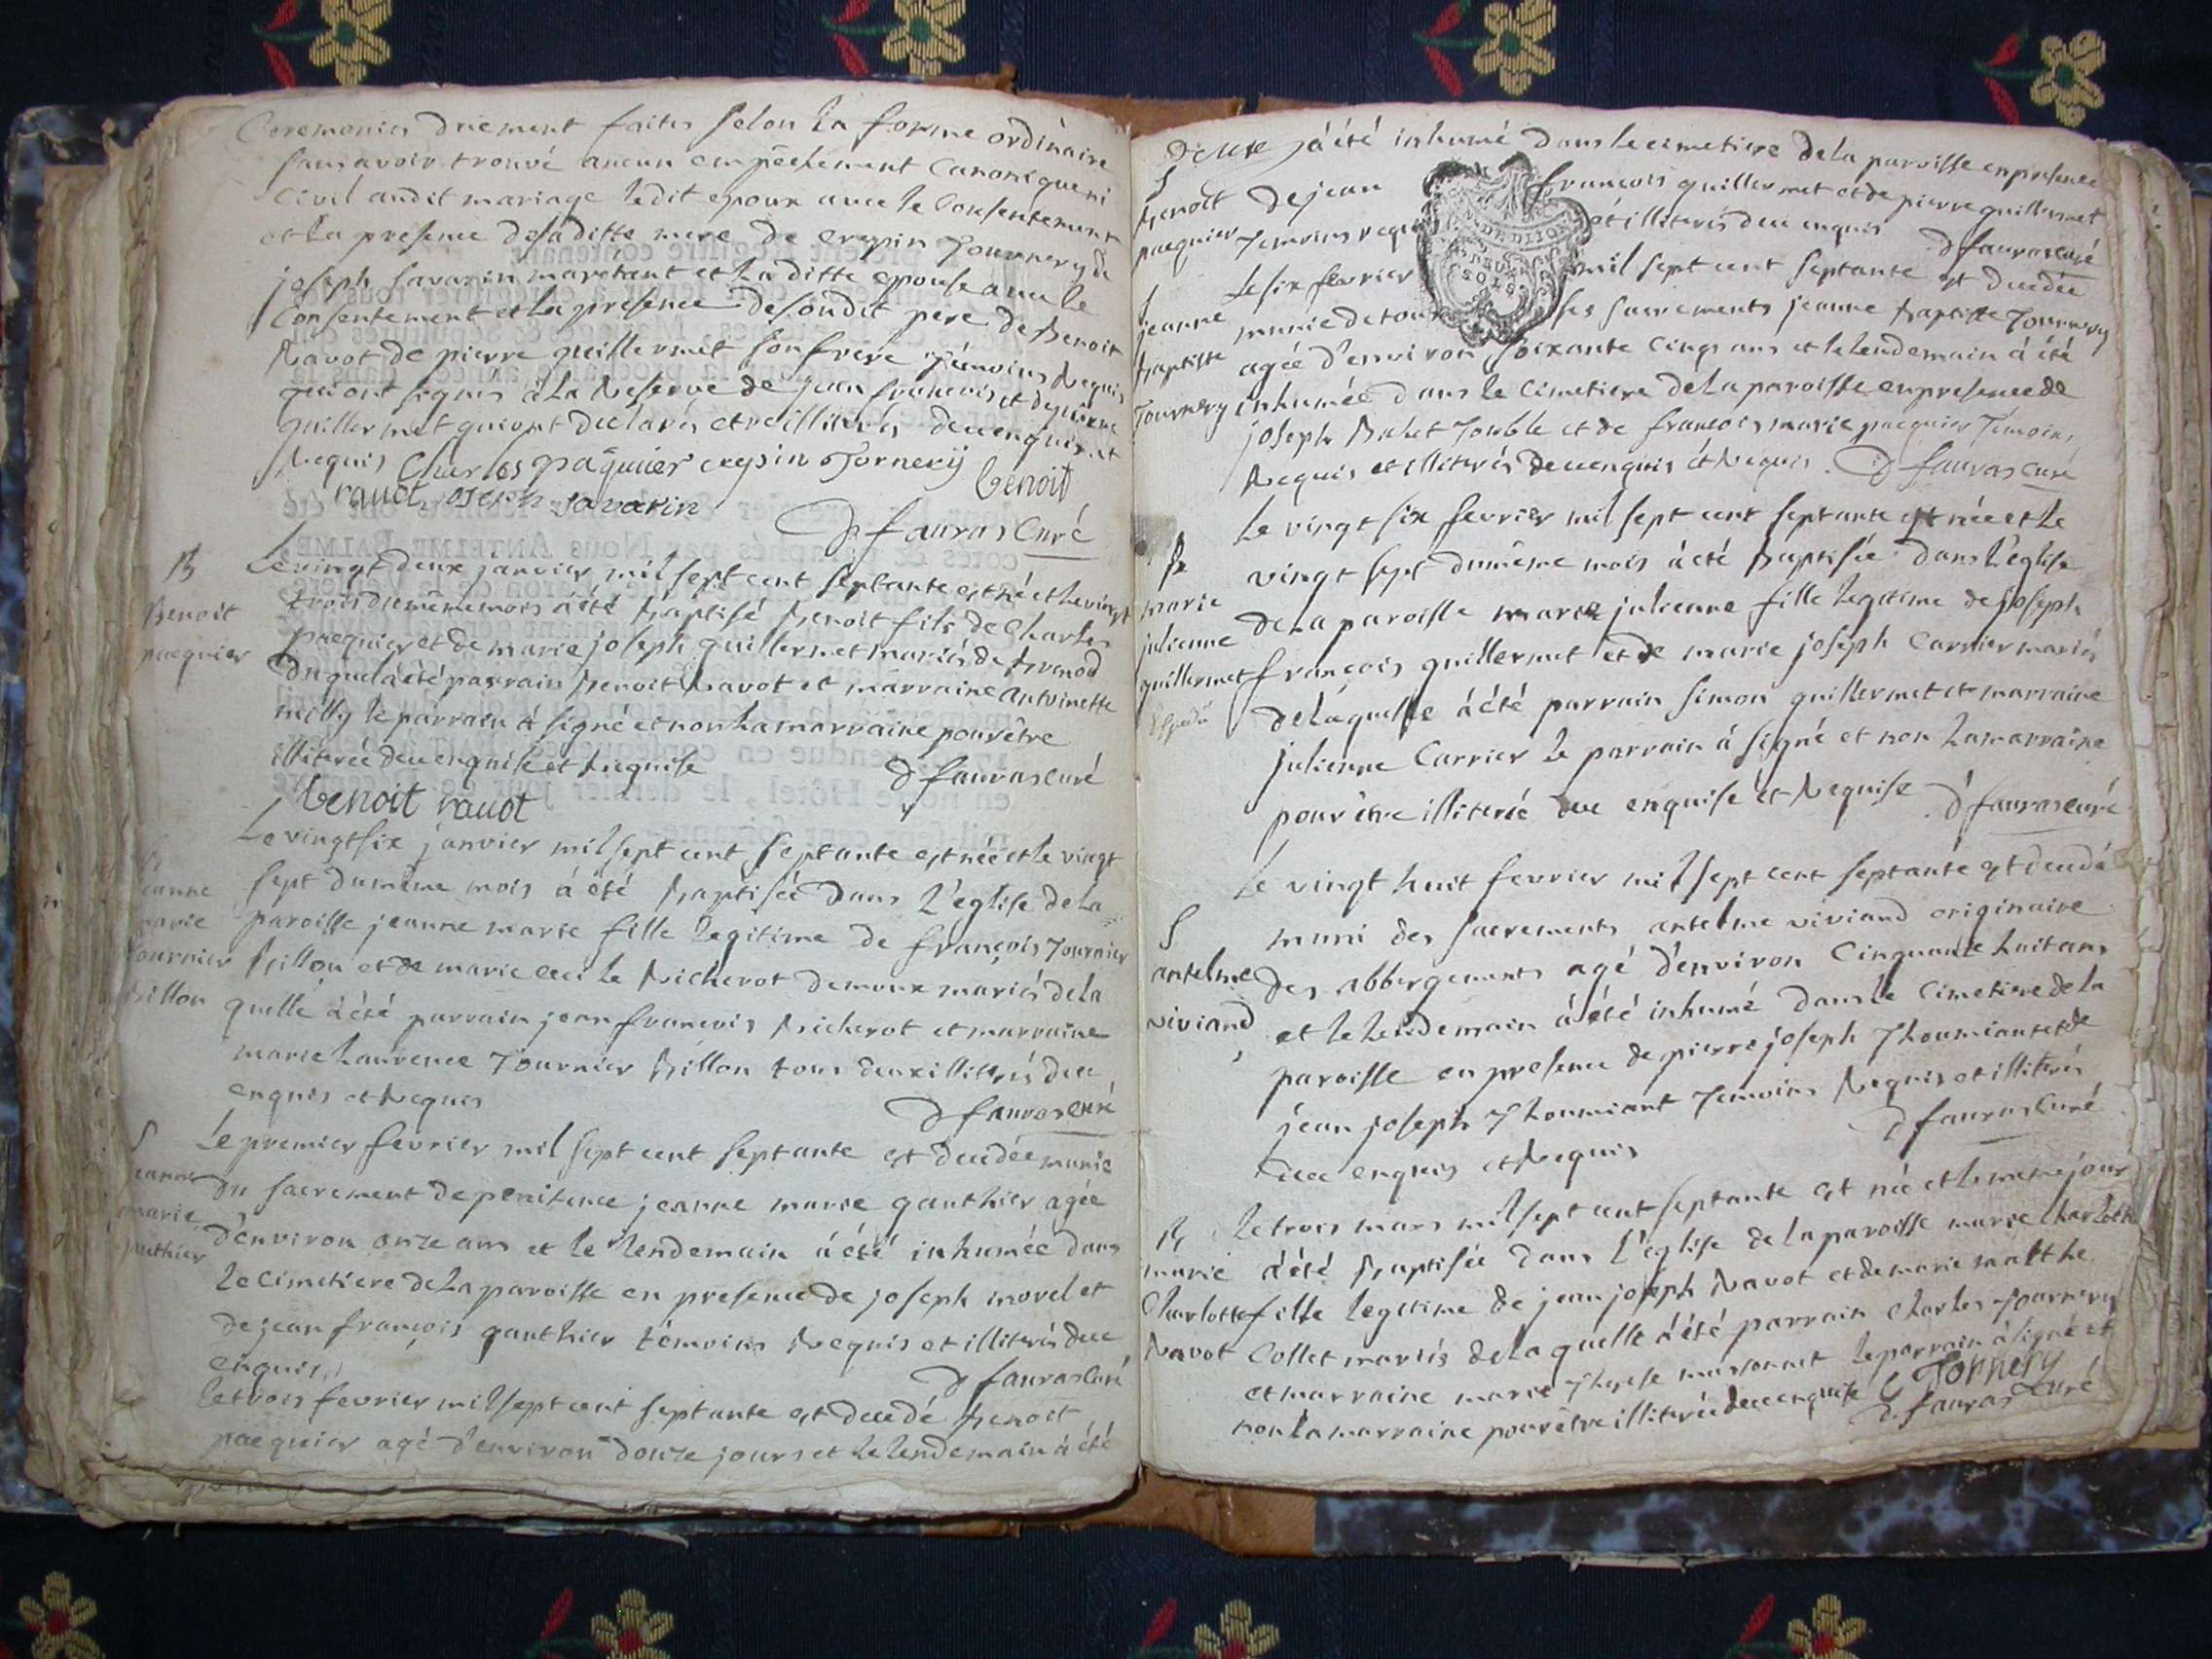 Ceremonies duement faites selon la forme ordinaire
sans avoir trouvé aucun empêchement Canonique ni
Civil audit mariage ledit epoux avec le Consentement
et la presence de saditte mere de crepin Tournery de
joseph savarin marchant et laditte epouse avec le
Consentement et la presence de sondit pere de Benoit
Ravot de pierre guillermet son frere témoins Requis
qui ont signes à la Reserve de jean francois et de pierre
guillermet qui ont declarés etre illiterés de ce enquis et
Requis Charles paquier crepin Tornery benoit
ravot joseph savarin
D fauras Curé
B
Benoit
pacquier
Le vingt deux janvier mil sept cent septante est né et le vingt
trois du même mois a été Baptisé Benoit fils de Charles
pacquier et de marie joseph guillermet mariés de Brenod
duquel a été parrain Benoit Ravot et marraine antoinette
milly le parrain à signé et non la marraine pour être
illiterée de ce enquise et Requise D fauras curé
benoit ravot
jeanne
marie
tournier
Billon
Le vingt six janvier mil sept cent septante est née et le vingt
sept du même mois à été Baptisée dans l'eglise de la
paroisse jeanne marie fille legitime de françois Tournier
Billon et de marie cecile Richerot demoux mariés de la
quelle à été parrain jean francois Richerot et marraine
marie Laurence Tournier Billon tous deux illiterés de ce
enquis et Requis D fauras curé
S
jeanne
marie
gauthier
Le premier fevrier mil sept cent septante est decedée munie
du sacrement de penitence jeanne marie gauthier agée
d'environ onze ans et le lendemain à été inhumée dans
le Cimetiere de la paroisse en presence de joseph morel et
de jean françois gauthier témoins Requis et illiterés de ce
enquis D fauras Curé
le trois fevrier mil sept cent septante est decedé Benoit
pacquier agé d'environ douze jours et le lendemain à été
Deuxe à été inhumé dans le cimetiere de la paroisse en presence
S
Benoit
pacquier
de jean françois guillermet et de pierre guillermet
Temoins requis et illiterés de ce enquis D fauras curé
S
jeanne
baptiste
Tournery
Le six fevrier mil sept cent septante est decedée
munie de tous ses sacrements jeanne Baptiste Tournery
agée d'environ soixante cinq ans et le lendemain à été
inhumée dans le Cimetiere de la paroisse en presence de
joseph Balet Jouble et de francois marie pacquier Temoins
Requis et illiterés de ce enquis et Requis D fauras curé
B
marie
julienne
guillermet
Le vingt six fevrier mil sept cent septante est née et le
vingt sept du même mois à été Baptisée dans l'eglise
de la paroisse marie julienne fille legitime de joseph
françois guillermet et de marie joseph Carrier mariés
de laquelle à été parrain simon guillermet et marraine
julienne Carrier le parrain à signé et non la marraine
pour être illiterée de ce enquise et Requise D fauras curé
S
antelme
viviand
Le vingt huit fevrier mil sept cent septante est decedé
muni des sacrements antelme viviand originaire
des abbergements agé d'environ Cinquante huit ans
et le lendemain à été inhumé dans le Cimetiere de la
paroisse en presence de pierre joseph Thoumiant et de
jean joseph Thoumiant Temoins Requis et illiterés
de ce enquis et Requis D fauras Curé
B
marie
Charlotte
Ravot
le trois mars mil sept cent septante est née et le meme jour
à été Baptisée dans l'eglise de la paroisse marie charlotte
fille legitime de jean joseph Ravot et de marie marthe
Collet mariés de laquelle à été parrain charles Tournery
et marraine marie Therese massonnet le parrain à signé et
non la marraine pour être illiterée de ce enquise C Tornery
D fauras Curé